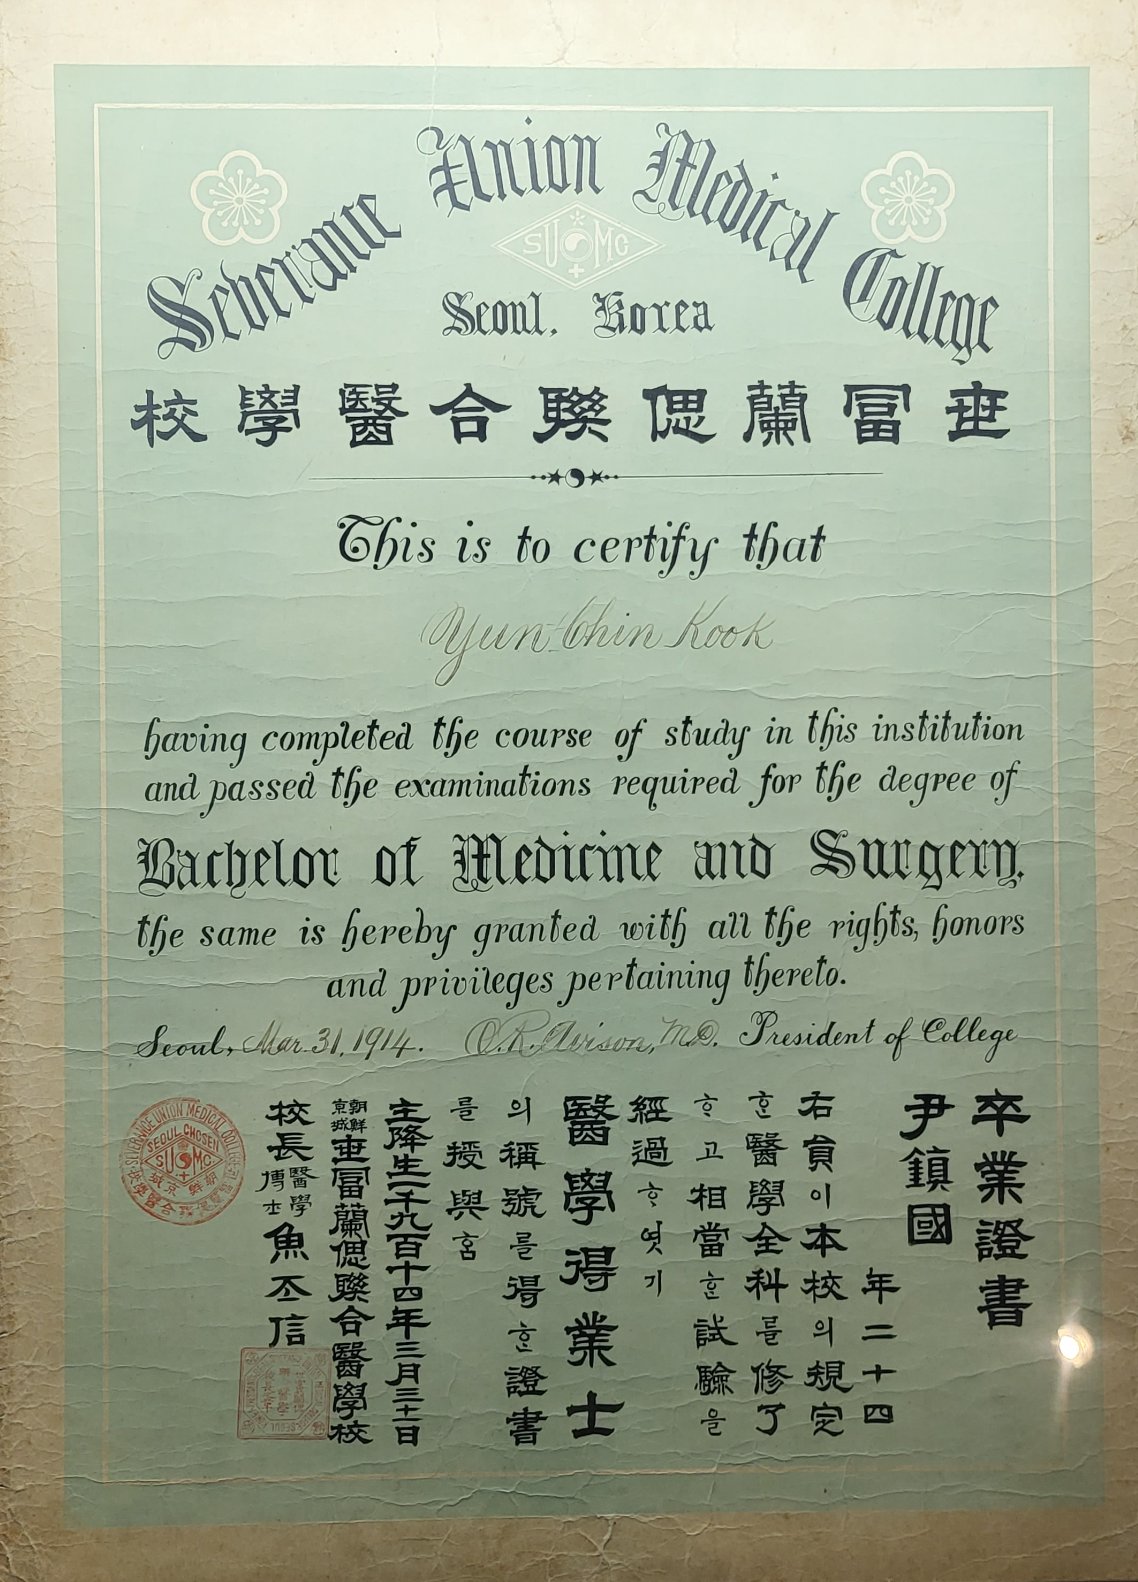 Severance Union Medical College
SUMC
Seoul, Korea
校學醫合聯偲蘭冨世
This is to certify that
Yun Chin Kook
having completed the course of study in this institution
and passed the examinations required for the degree of
Bachelor of Medicine and Surgery,
the same is hereby granted with all the rights, honors
and privileges pertaining thereto.
Seoul, Mar. 31, 1914. O. R. Avison, M.D. President of College
卒業證書
尹鎮國
年二十四
右員이本校의規定
한醫學全科를修了
하고相當한試驗을
經過하엿기
醫學得業士
의稱號를得한證書
를授與홈
主降生一千九百十四年三月三十一日
朝鮮京城世冨蘭偲聯合醫學校
校長醫學博士魚丕信
SEVERANCE UNION MEDICAL COLLEGE
SEOUL CHOSEN
SUMC